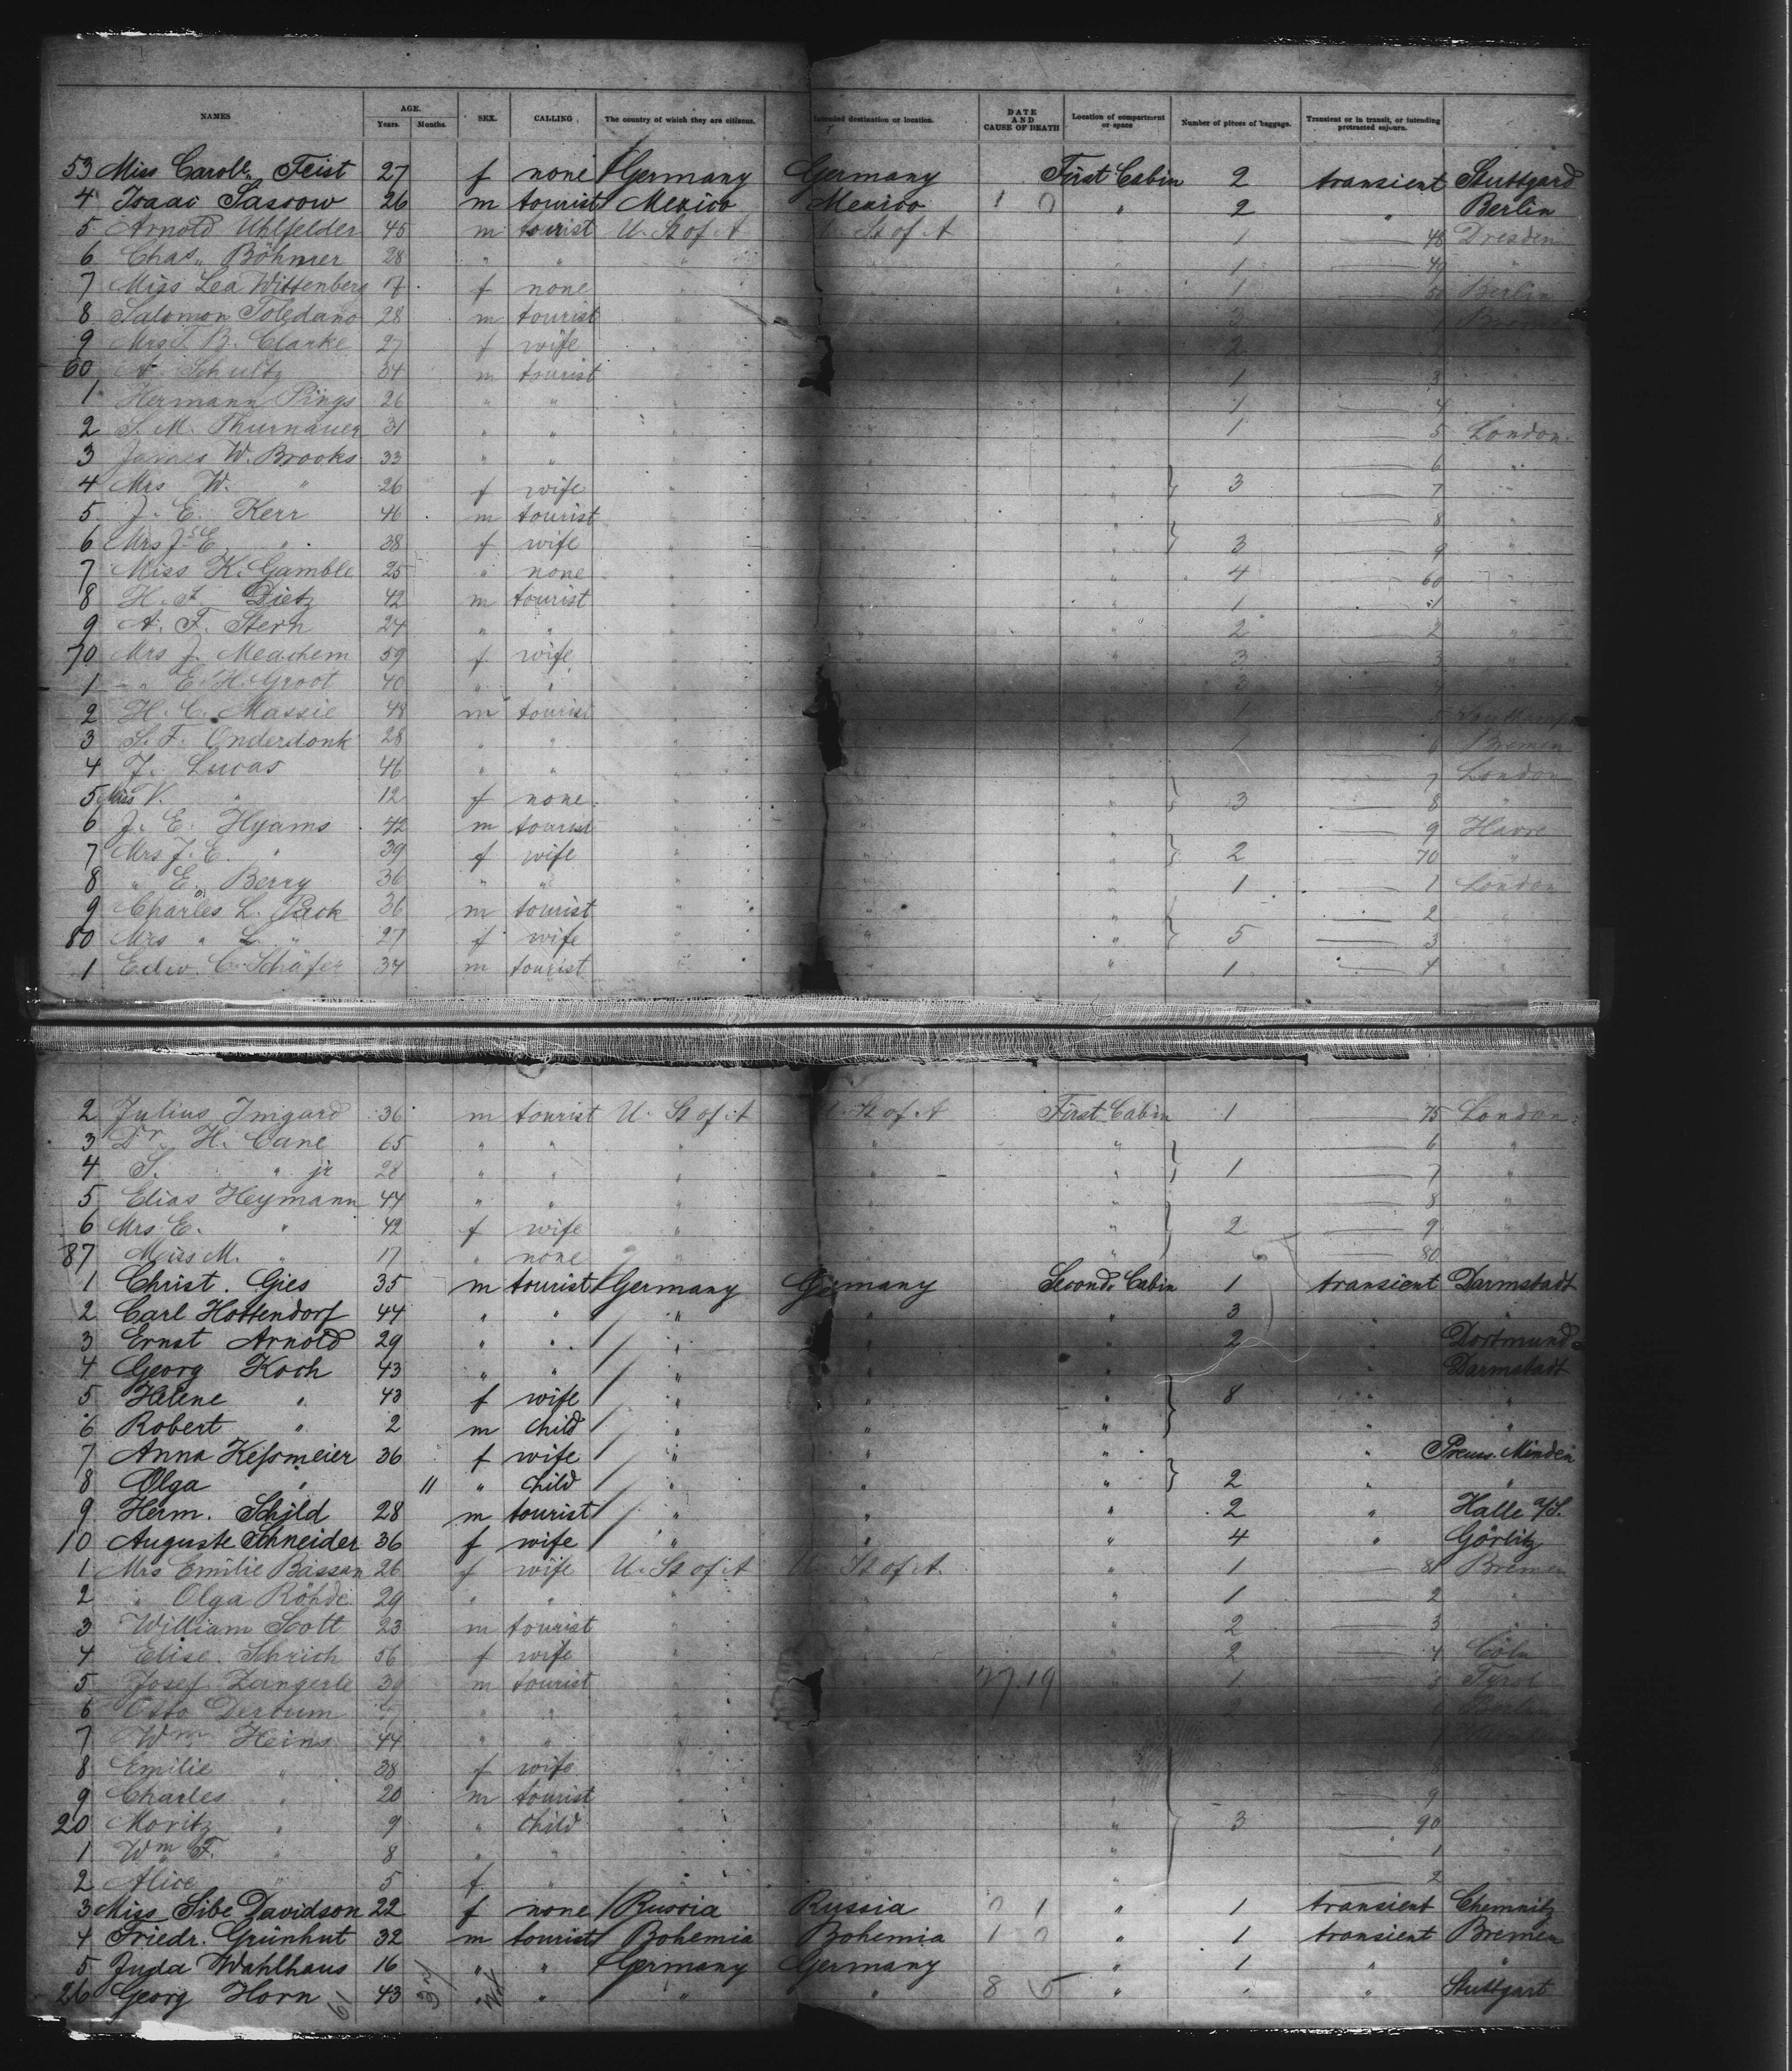 NAMES AGE. Years. Months. SEX. CALLING. The country of which they are citizens. Intended destination or location. DATE AND CAUSE OF DEATH Location of compartment or space Number of pieces of baggage. Transient or in transit, or intending protracted sojourn.
53 Miss Carol. Feist 27 f none Germany Germany First Cabin 2 transient Stuttgard
4 Isaac 26 m tourist Mexico Mexico 1 0 " 2 " Berlin
5 Arnold Uhlfelder 45 m tourist U. St of A U. St of A " 1 — 48 Dresden
6 Chas. Böhmer 28 " " " " " 1 — 49 "
7 Miss Lea Wittenberg 17 f none " " " 1 — 50 Berlin
8 Salomon Toledano 28 m tourist " " " 3 — 1
9 Mrs T. B. Clarke 27 f wife " " " 2
60 A. Schultz 34 m tourist " " " 1 — 3
1 Hermann Pings 26 " " " " " 1 — 4
2 S. M. Thurnauer 31 " " " " " 1 — 5 London
3 James W. Brooks 33 " " " " " — 6 "
4 Mrs W. " 26 f wife " " " } 3 — 7 "
5 J. E. Kerr 46 m tourist " " " — 8 "
6 Mrs J. E. " 38 f wife " " " } 3 — 9 "
7 Miss K. Gamble 25 " none " " " 4 — 60 "
8 H. F. Dietz 42 m tourist " " " 1 — 1 "
9 A. F. Stern 24 " " " " " 2 — 2 "
70 Mrs J. Meachem 59 f wife " " " 3 — 3 "
1 " E. H. Groot 40 " " " " " 3
2 H. C. Massie 48 m tourist " " " 1 — 5
3 S. F. Onderdonk 28 " " " " " 1 — 6 Bremen
4 J. Lucas 46 " " " " " — 7 London
5 Miss V. " 12 f none " " " } 3 — 8 "
6 J. E. Hyams 42 m tourist " " " — 9 Havre
7 Mrs J. E. " 39 f wife " " " } 2 — 70 "
8 " E. Berry 36 " " " " " 1 — 1 London
9 Charles L. Pack 36 m tourist " " " — 2 "
80 Mrs " L. " 27 f wife " " " } 5 — 3 "
1 Edw. C. Schäfer 34 m tourist " " " 1 — 4 "
2 Julius 36 m tourist U. St of A U. St of A First Cabin 1 75 London
3 Dr. H. Cane 65 " " " " " — 6 "
4 S. " jr 28 " " " " " } 1 — 7 "
5 Elias Heymann 44 " " " " " — 8 "
6 Mrs E. " 42 f wife " " " } 2 — 9 "
87 Miss M. " 17 " none " " " — 80 "
1 Christ. Gies 35 m tourist Germany Germany Second Cabin 1 transient Darmstadt
2 Carl Hottendorf 44 " " " " " 3 " "
3 Ernst Arnold 29 " " " " " 2 " Dortmund
4 Georg Koch 43 " " " " " " Darmstadt
5 Helene " 43 f wife " " " } 8 " "
6 Robert " 2 m child " " " " "
7 Anna Keßmeier 36 f wife " " " " Preuss. Minden
8 Olga " 11 " child " " " } 2 " "
9 Herm. Schild 28 m tourist " " " 2 " Halle a/S.
10 Auguste Schneider 36 f wife " " " 4 " Görlitz
1 Mrs Emilie Bassan 26 f wife U. St of A U. St of A. " 1 — 81 Bremen
2 " Olga Röhde 29 " " " " " 1 — 2 "
3 William Scott 23 m tourist " " " 2 — 3 "
4 Elise 56 f wife " " " 2 — 4 Cöln
5 Josef Zangerle 39 m tourist " " 1 Tyrol
6 Otto " " " " " 2 Berlin
7 Wm Heins 44 " " " "
8 Emilie " 38 f wife " " " 8
9 Charles " 20 m tourist " " " — 9
20 Moritz " 9 " child " " " } 3 — 90
1 Wm F. " 8 " " " " " — 1 "
2 Alice " 5 f. " " " " — 2
3 Miss Sibe Davidson 22 f none Russia Russia 0 1 " 1 transient Chemnitz
4 Friedr. Grünhut 32 m tourist Bohemia Bohemia 1 0 " 1 transient Bremen
5 Juda Wahlhaus 16 " " Germany Germany " 1 " "
26 Georg Horn 43 " " " " 8 5 " " " Stuttgart